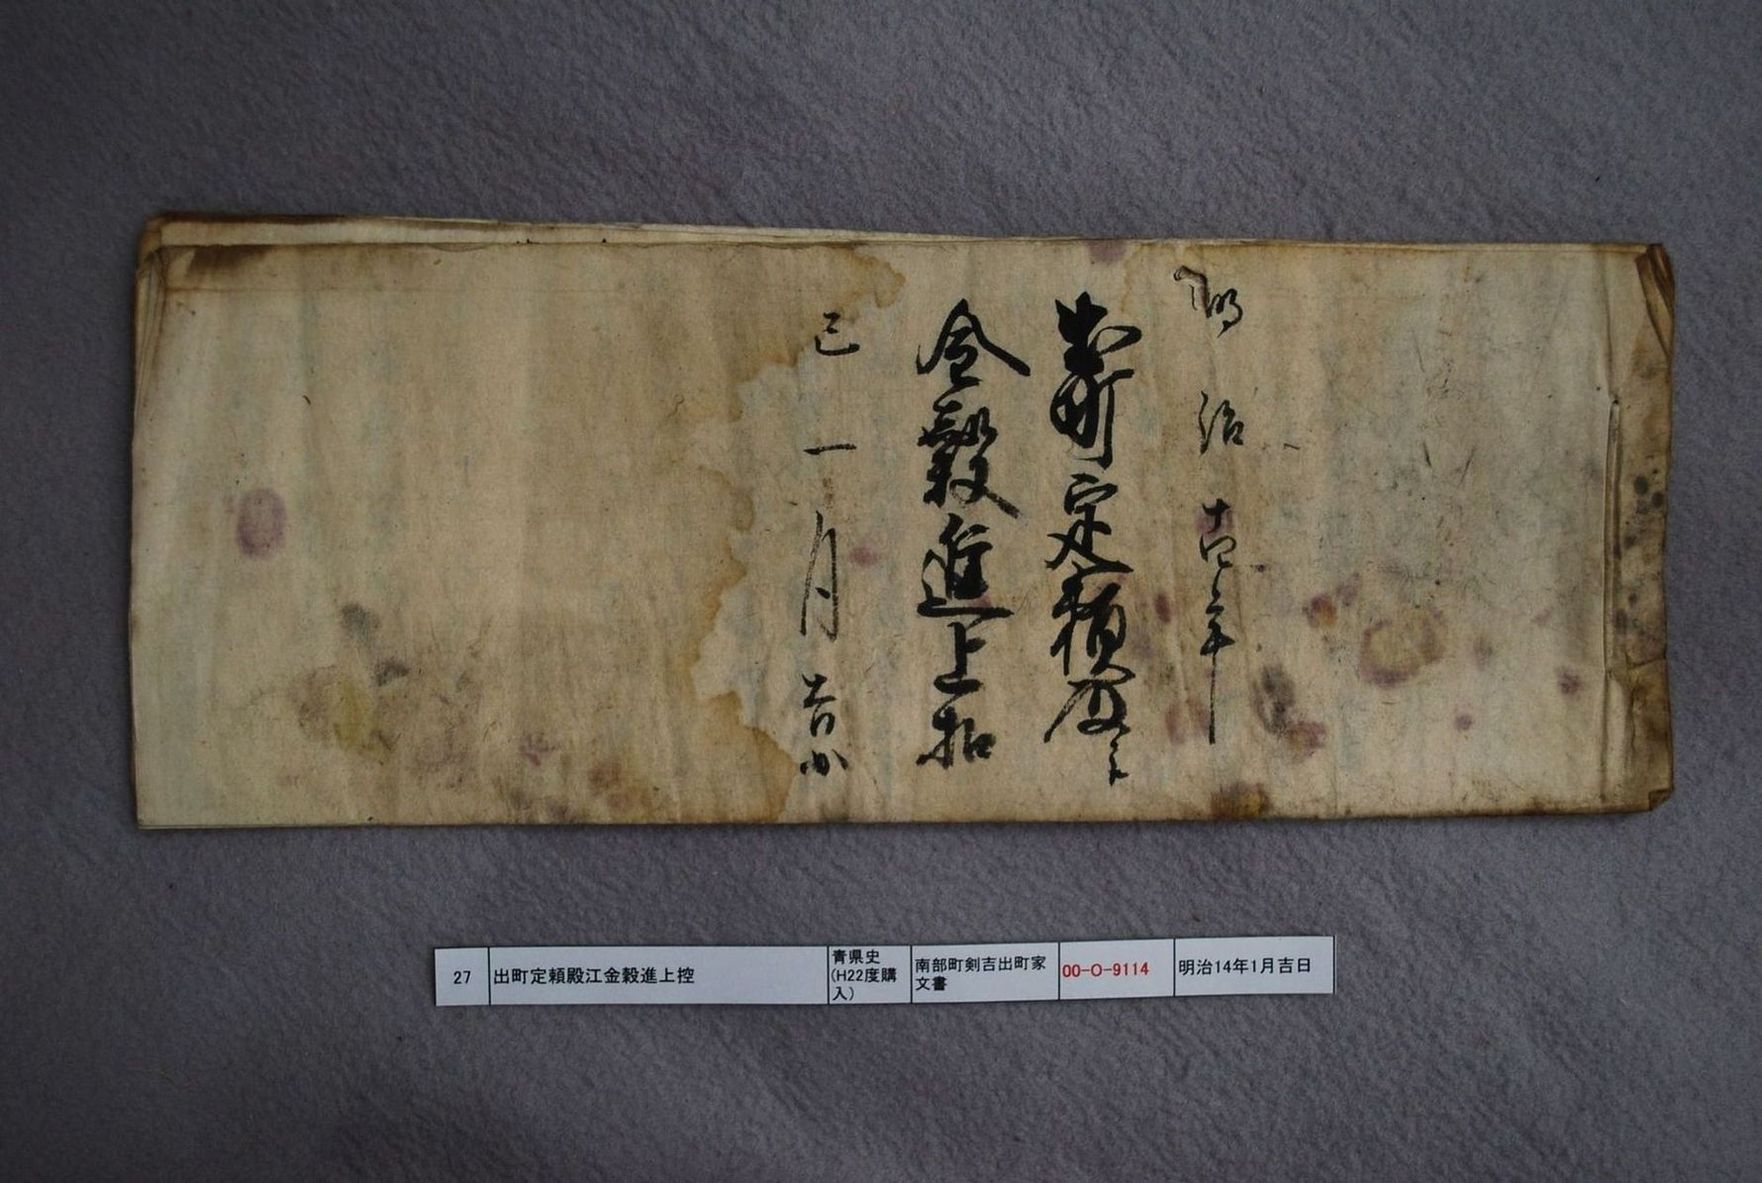 明治十四年
出町定頼殿江
金穀進上扣
巳一月吉日
27
出町定頼殿江金穀進上控
青県史
(H22度購
入)
南部町剣吉出町家
文書
00-O-9114
明治14年1月吉日